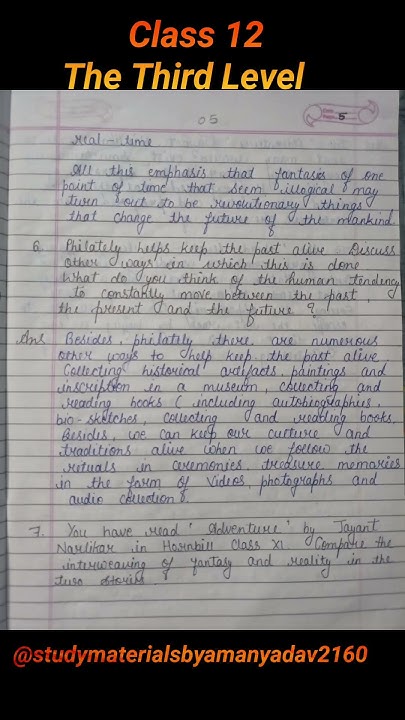 Class 12
The Third Level
05
5
real-time
All this emphasis that fantasies of one
point of time that seem illogical may
turn out to be revolutionary things
that change the future of the mankind.
6. Philately helps keep the past alive. Discuss
other ways in which this is done.
What do you think of the human tendency
to constantly move between the past,
the present and the future ?
Ans Besides, philately there are numerous
other ways to help keep the past alive
Collecting historical artifacts, paintings and
inscription in a museum, collecting and
reading books ( including autobiographies,
bio-sketches, collecting and reading books.
Besides, we can keep our culture and
traditions alive when we follow the
rituals in ceremonies. treasure memories
in the form of videos, photographs and
audio collection.
7. You have read 'Adventure' by Jayant
Narlikar in Hornbill Class XI. Compare the
interweaving of fantasy and reality in the
two stories.
@studymaterialsbyamanyadav2160